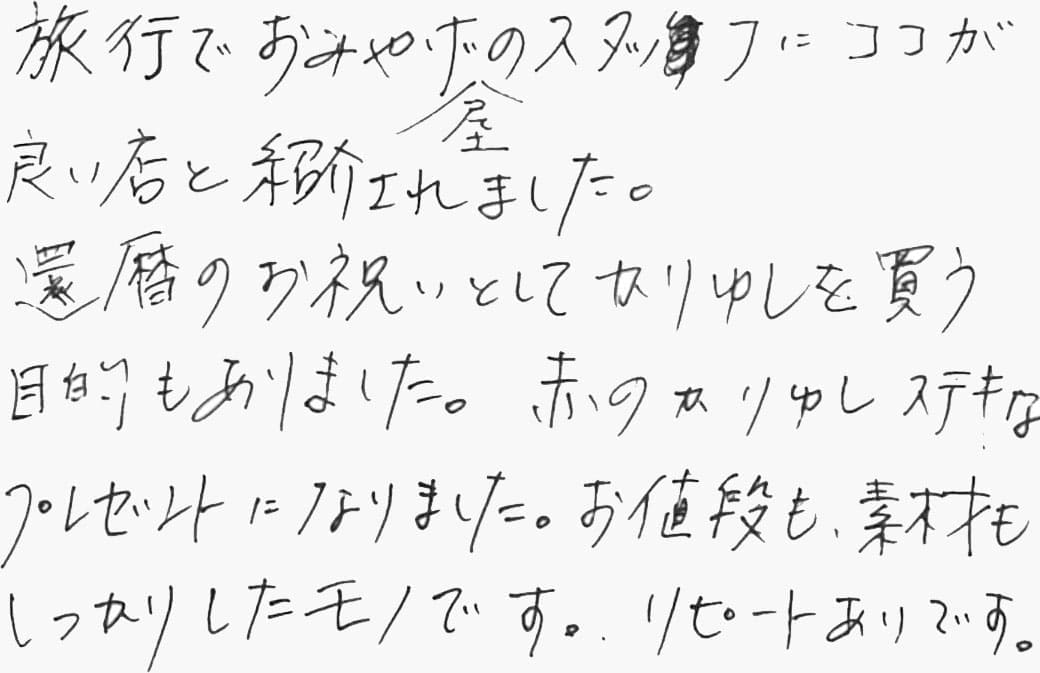 旅行でおみやげ屋のスタッフにココが
良い店と紹介されました。
還暦のお祝いとしてかりゆしを買う
目的もありました。赤のかりゆしステキな
プレゼントになりました。お値段も、素材も
しっかりしたモノです。リピートありです。